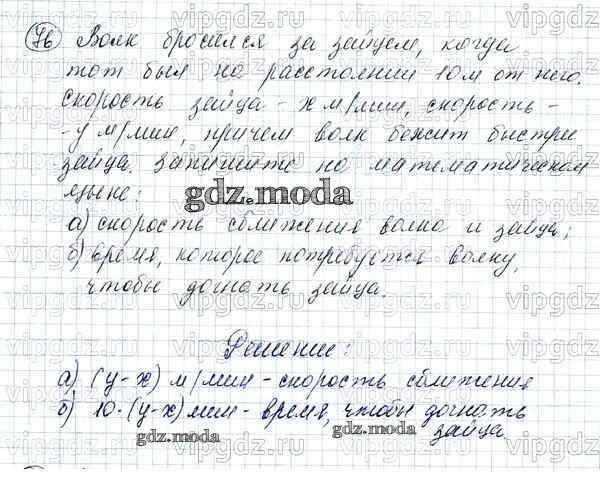 76 Волк бросился за зайцем, когда
тот был на расстоянии 10м от него.
Скорость зайца - x м/мин, скорость -
- y м/мин, причем волк бежит быстрее
зайца. Запишите на математическом
языке:
gdz.moda
а) скорость сближения волка и зайца;
б) время, которое потребуется волку,
чтобы догнать зайца.
Решение:
а) (y-x) м/мин - скорость сближения
б) 10 · (y-x) мин - время, чтобы догнать
зайца
gdz.moda
gdz.moda
vipgdz.ru